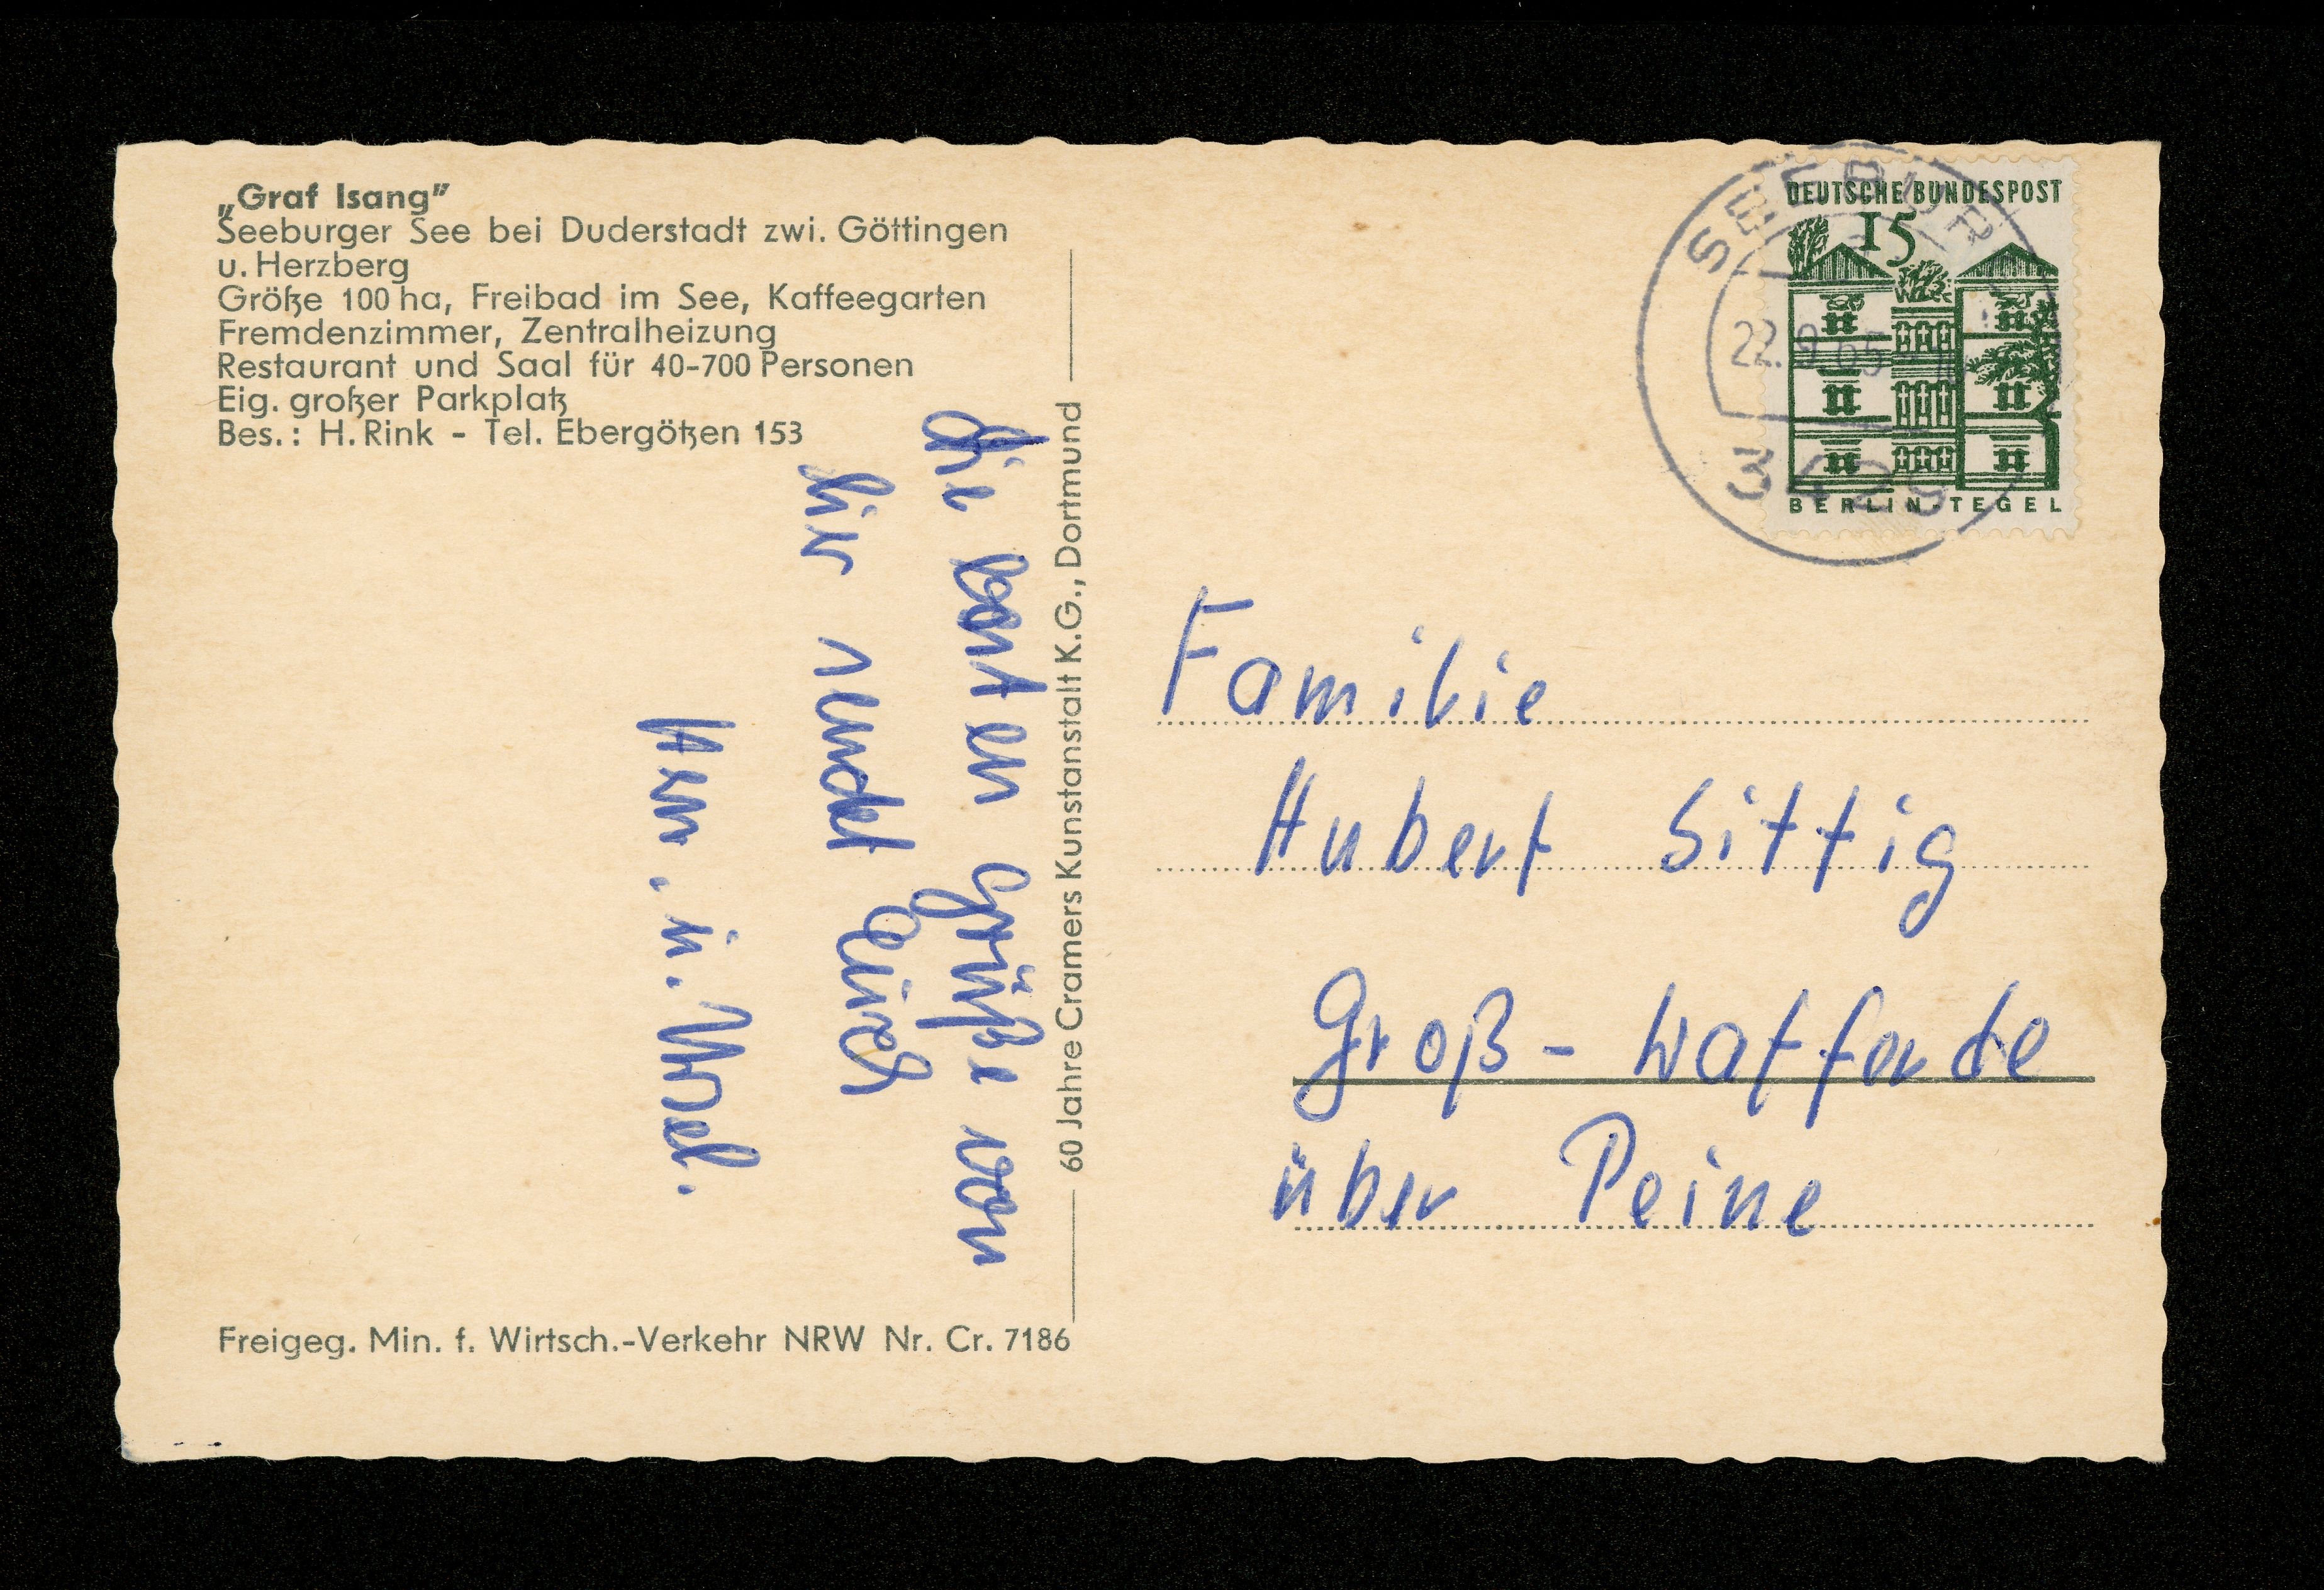 „Graf Isang"
Seeburger See bei Duderstadt zwi. Göttingen
u. Herzberg
Größe 100 ha, Freibad im See, Kaffeegarten
Fremdenzimmer, Zentralheizung
Restaurant und Saal für 40-700 Personen
Eig. großer Parkplatz
Bes.: H. Rink - Tel. Ebergötzen 153
die besten Grüße von
hier sendet Euch
Herm. u.
60 Jahre Cramers Kunstanstalt K.G., Dortmund
Freigeg. Min. f. Wirtsch.-Verkehr NRW Nr. Cr. 7186
DEUTSCHE BUNDESPOST
15
BERLIN-TEGEL
SEEBURG
22.9.65
Familie
Hubert Sittig
Groß-
über Peine